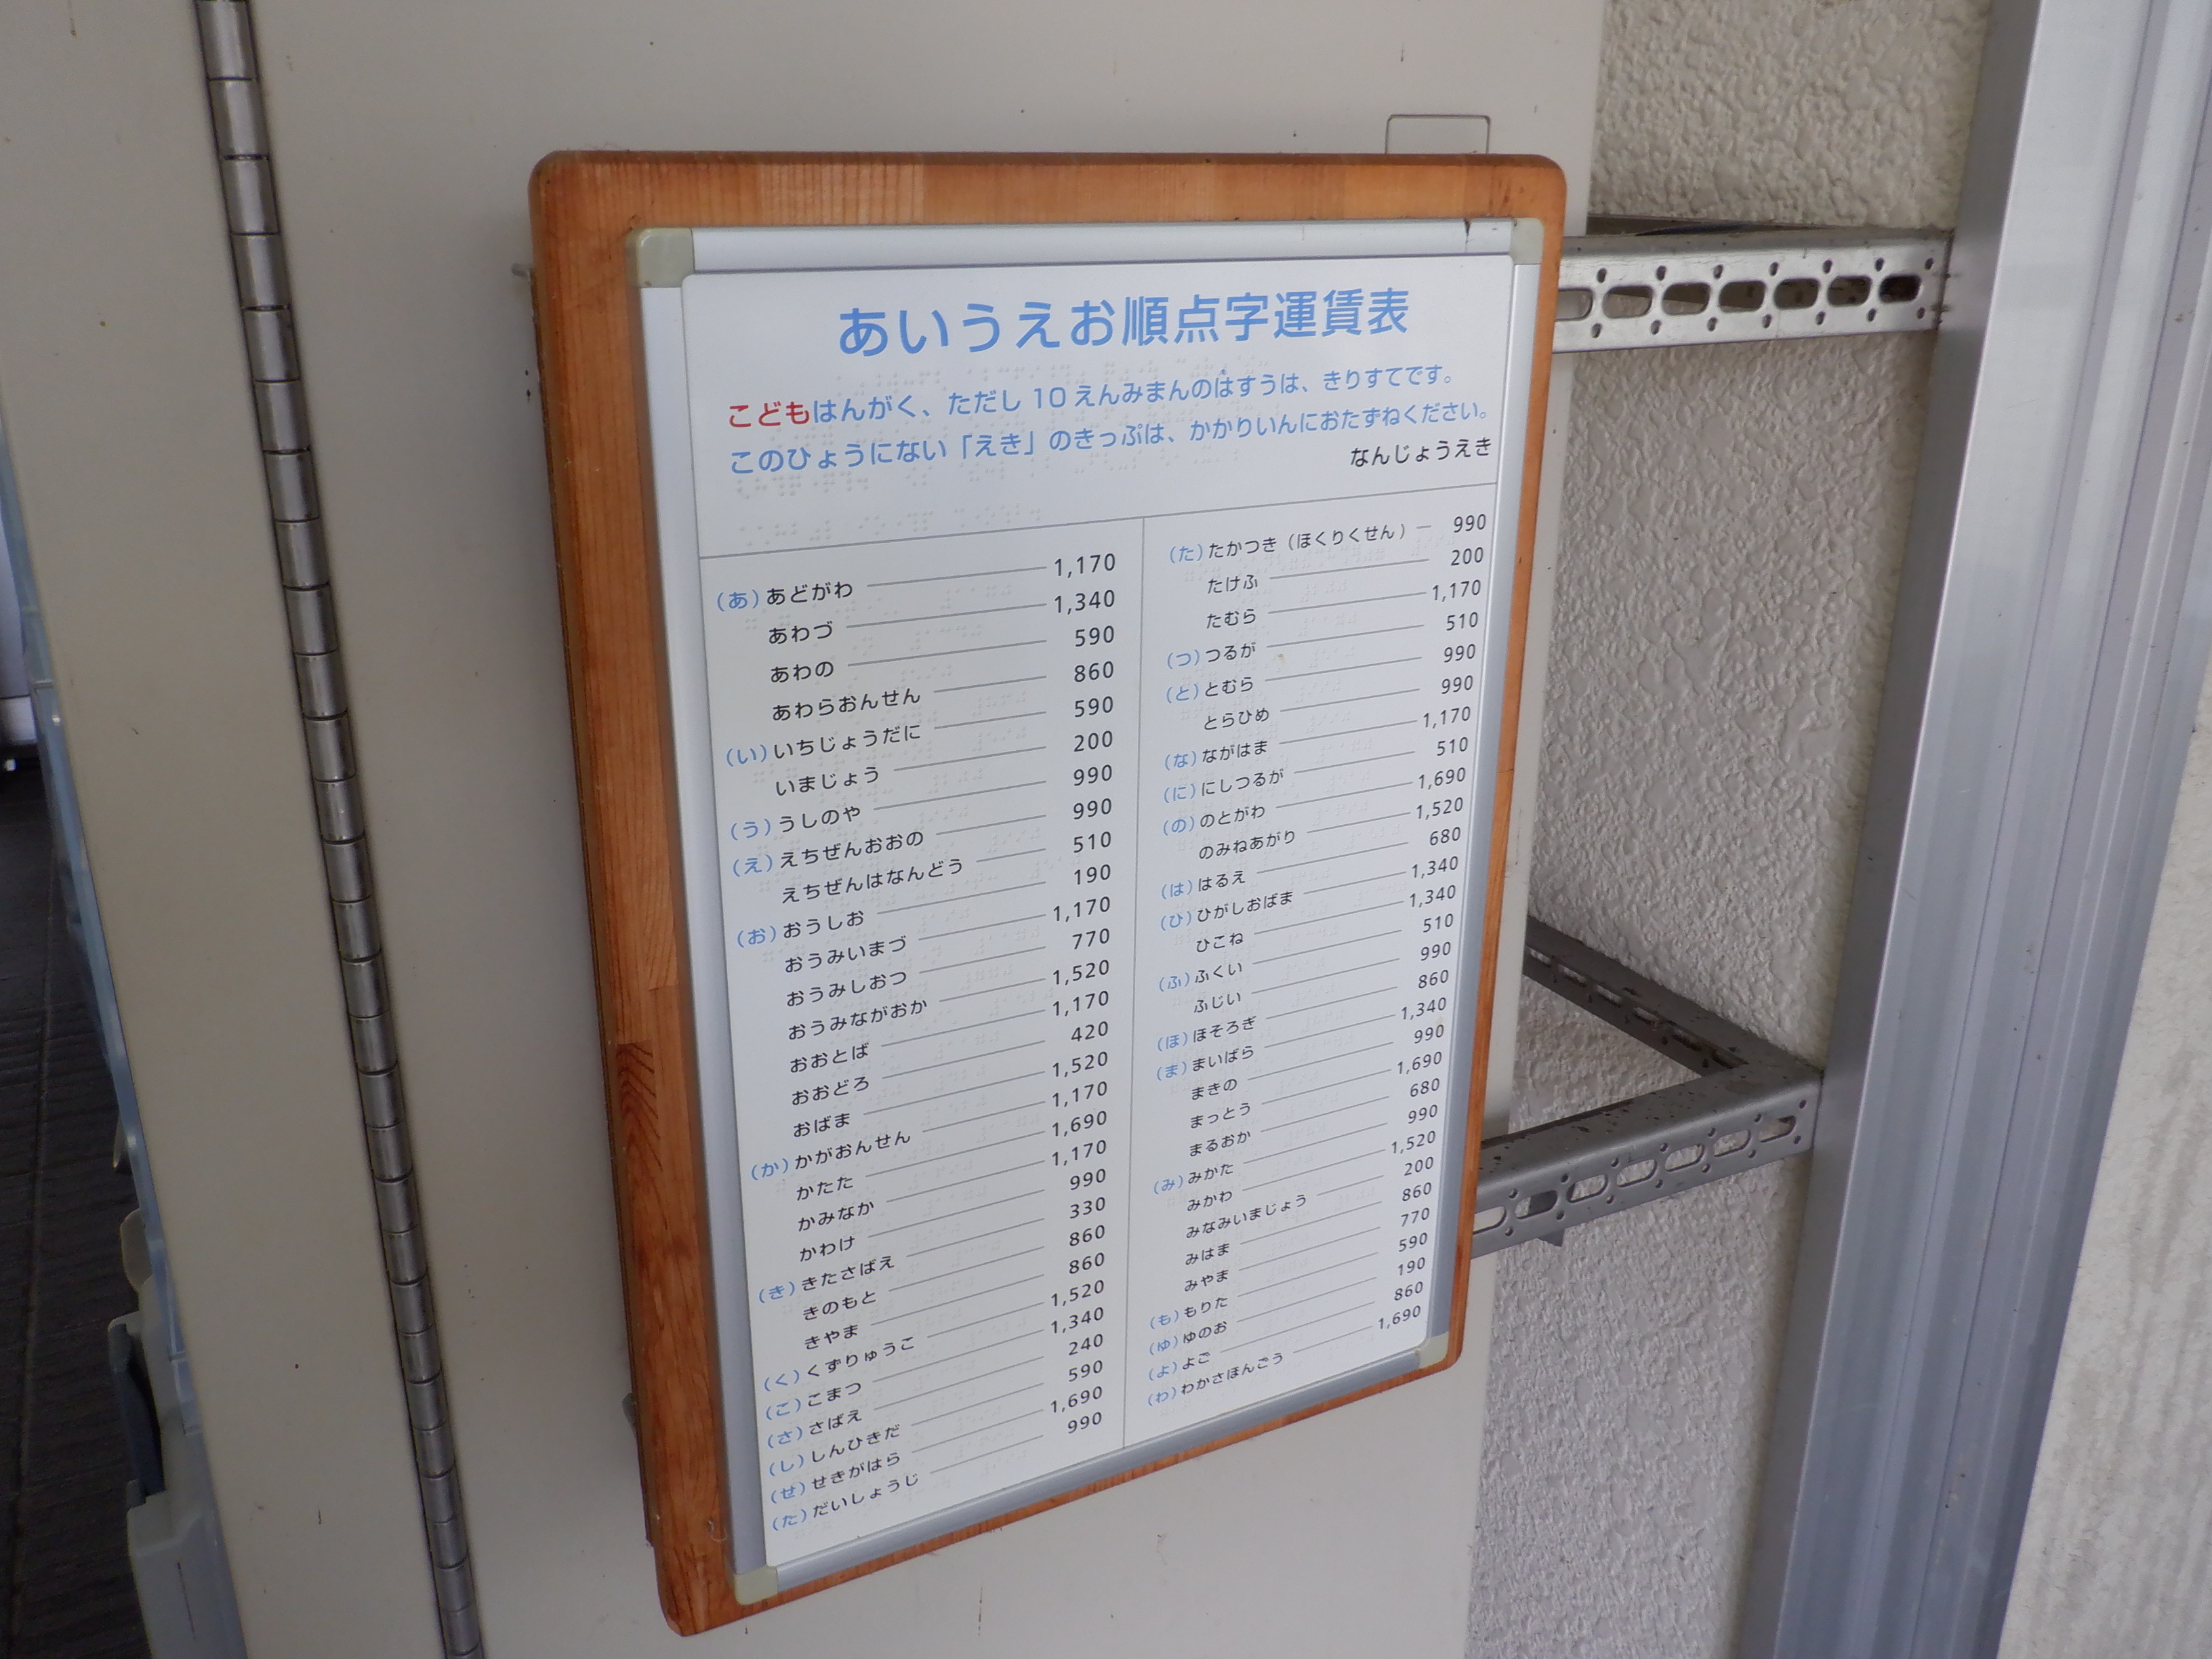 あいうえお順点字運賃表
こどもはんがく、ただし 10 えんみまんのはすうは、きりすてです。
このひょうにない「えき」のきっぷは、かかりいんにおたずねください。
なんじょうえき
(あ) あどがわ 1,170
あわづ 1,340
あわの 590
あわらおんせん 860
(い) いちじょうだに 590
いまじょう 200
(う) うしのや 990
(え) えちぜんおおの 990
えちぜんはなんどう 510
(お) おうしお 190
おうみいまづ 1,170
おうみしおつ 770
おうみながおか 1,520
おおとば 1,170
おおどろ 420
おばま 1,520
(か) かがおんせん 1,170
かたた 1,690
かみなか 1,170
かわけ 990
(き) きたさばえ 330
きのもと 860
きやま 860
(く) くずりゅうこ 1,520
(こ) こまつ 1,340
(さ) さばえ 240
(し) しんひきだ 590
(せ) せきがはら 1,690
(た) だいしょうじ 990
(た) たかつき (ほくりくせん) 990
たけふ 200
たむら 1,170
(つ) つるが 510
(と) とむら 990
とらひめ 990
(な) ながはま 1,170
(に) にしつるが 510
(の) のとがわ 1,690
のみねあがり 1,520
(は) はるえ 680
(ひ) ひがしおばま 1,340
ひこね 1,340
(ふ) ふくい 510
ふじい 990
(ほ) ほそろぎ 860
(ま) まいばら 1,340
まきの 990
まっとう 1,690
まるおか 680
(み) みかた 990
みかわ 1,520
みなみいまじょう 200
みはま 860
みやま 770
(も) もりた 590
(ゆ) ゆのお 190
(よ) よご 860
(わ) わかさほんごう 1,690